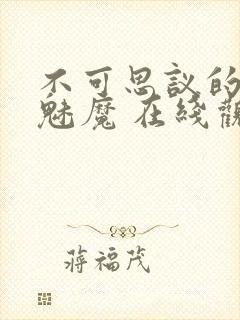 不可思议的
魅魔 在线观
蒋福茂